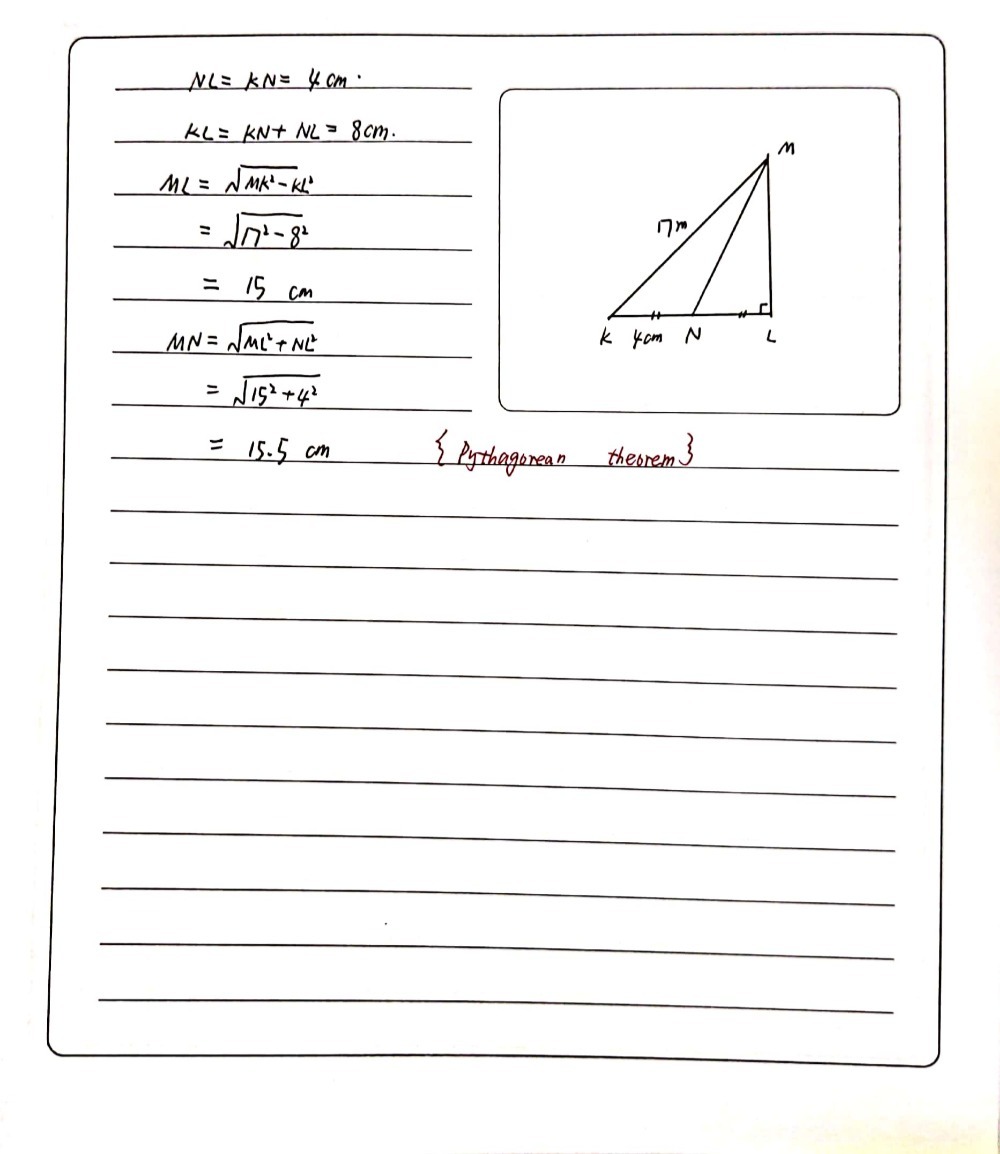 NL = KN = 4 cm.
KL = KN + NL = 8cm.
ML = √MK² - KL²
= √17² - 8²
= 15 cm
MN = √ML² + NL²
= √15² + 4²
= 15.5 cm { Pythagorean theorem }
M
17 m
K 4cm N L